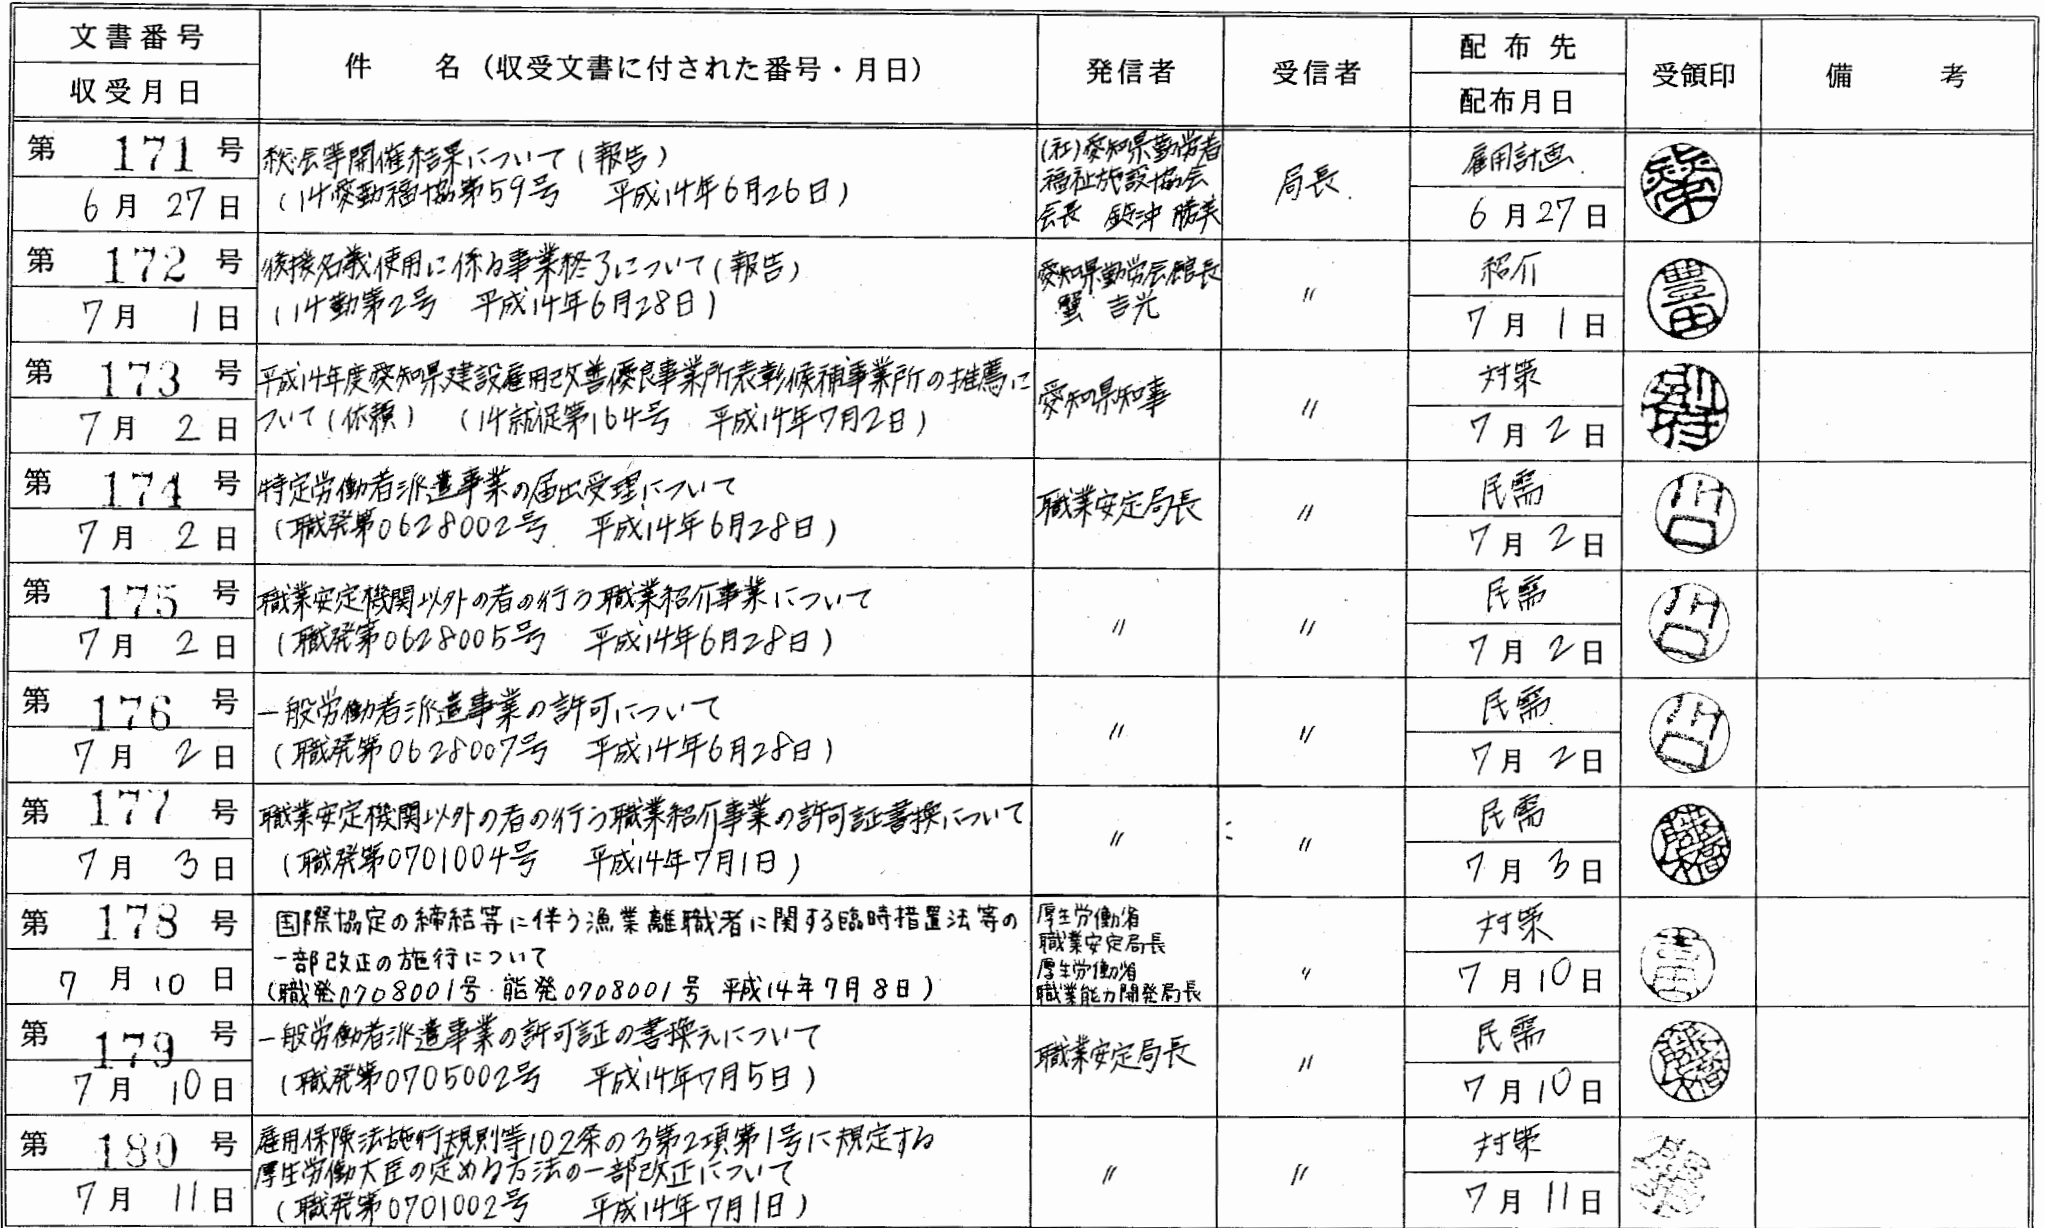 文書番号
収受月日
件 名（収受文書に付された番号・月日）
発信者
受信者
配布先
配布月日
受領印
備 考
第 171 号
6月 27日
総会等開催結果について（報告）
（14愛勤福協第59号 平成14年6月26日）
(社)愛知県勤労者
福祉施設協会
会長 勝美
局長
雇用計画
6月27日
第 172 号
7月 1日
後援名義使用に係る事業終了について（報告）
（14勤第2号 平成14年6月28日）
愛知県勤労会館長
蟹 吉光
〃
紹介
7月 1日
豊田
第 173 号
7月 2日
平成14年度愛知県建設雇用改善優良事業所表彰候補事業所の推薦に
ついて（依頼） （14就促第164号 平成14年7月2日）
愛知県知事
〃
対策
7月 2日
別府
第 174 号
7月 2日
特定労働者派遣事業の届出受理について
（職発第0628002号 平成14年6月28日）
職業安定局長
〃
民需
7月 2日
第 175 号
7月 2日
職業安定機関以外の者の行う職業紹介事業について
（職発第0628005号 平成14年6月28日）
〃
〃
民需
7月 2日
第 176 号
7月 2日
一般労働者派遣事業の許可について
（職発第0628007号 平成14年6月28日）
〃
〃
民需
7月 2日
第 177 号
7月 3日
職業安定機関以外の者の行う職業紹介事業の許可証書換について
（職発第0701004号 平成14年7月1日）
〃
〃
民需
7月 3日
第 178 号
7月10日
国際協定の締結等に伴う漁業離職者に関する臨時措置法等の
一部改正の施行について
（職発0708001号・能発0708001号 平成14年7月8日）
厚生労働省
職業安定局長
厚生労働省
職業能力開発局長
〃
対策
7月10日
第 179 号
7月 10日
一般労働者派遣事業の許可証の書換えについて
（職発第0705002号 平成14年7月5日）
職業安定局長
〃
民需
7月10日
第 180 号
7月 11日
雇用保険法施行規則等102条の3第2項第1号に規定する
厚生労働大臣の定める方法の一部改正について
（職発第0701002号 平成14年7月1日）
〃
〃
対策
7月11日